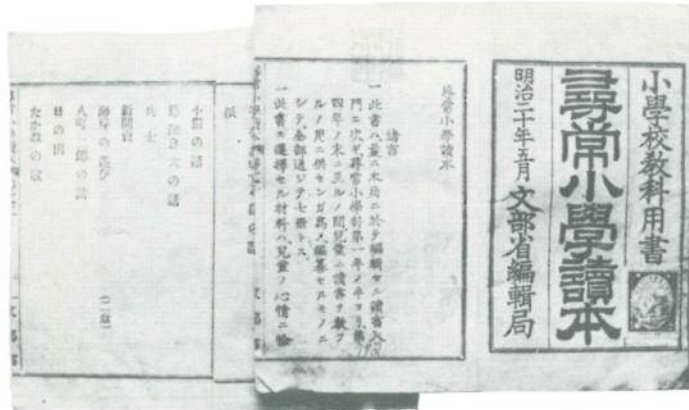 小學校教科用書
尋常小學讀本
明治二十年五月 文部省編輯局
尋常小學讀本
緒言
一此書ハ曩ニ本局ニ於テ編輯セル讀書入
門ニ次ギ尋常小學科第一年ノ半ヨリ第
四年ノ末ニ至ルノ間兒童ニ讀書ヲ教フ
ルノ用ニ供センガ爲メ編纂セルモノニ
シテ全部通ジテ七冊トス
一此書ニ選擇セル材料ハ兒童ノ心情ニ恰
の話
の話
兵士
海岸の遊び (二章)
の話
日の出
の歌
文部省